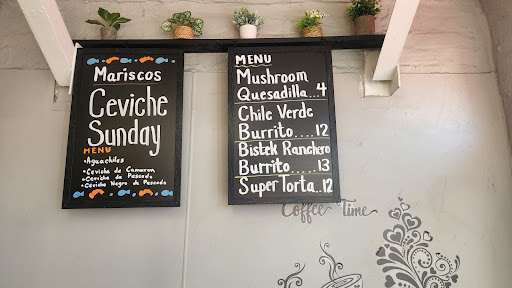 Mariscos
Ceviche
Sunday
MENU
•Aguachiles
•Ceviche de Camaron
•Ceviche de Pescado
•Ceviche Negro de Pescado
MENU
Mushroom
Quesadilla...4
Chile Verde
Burrito.....12
Bistek Ranchero
Burrito.....13
Super Torta..12
Coffee Time